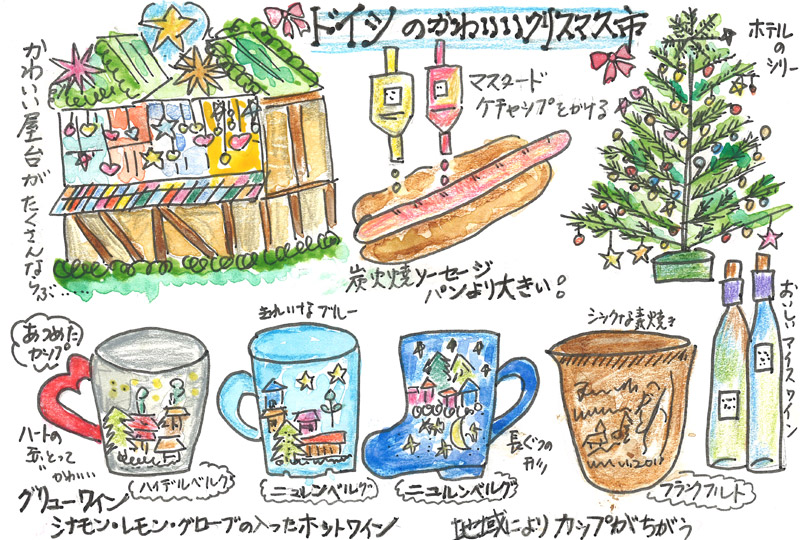 ドイツのかわいいクリスマス市
かわいい屋台がたくさんならぶ……
マスタード
ケチャップをかける
ホテル
の
ツリー
炭火焼ソーセージ
パンより大きい!
おいしいアイスワイン
あつめた
カップ
きれいなブルー
シックな素焼き
ハートの
とって
かわいい
長ぐつの
形
ハイデルベルグ
ニュルンベルグ
ニュルンベルグ
フランクフルト
グリューワイン
シナモン・レモン・グローブの入ったホットワイン
地域によりカップがちがう